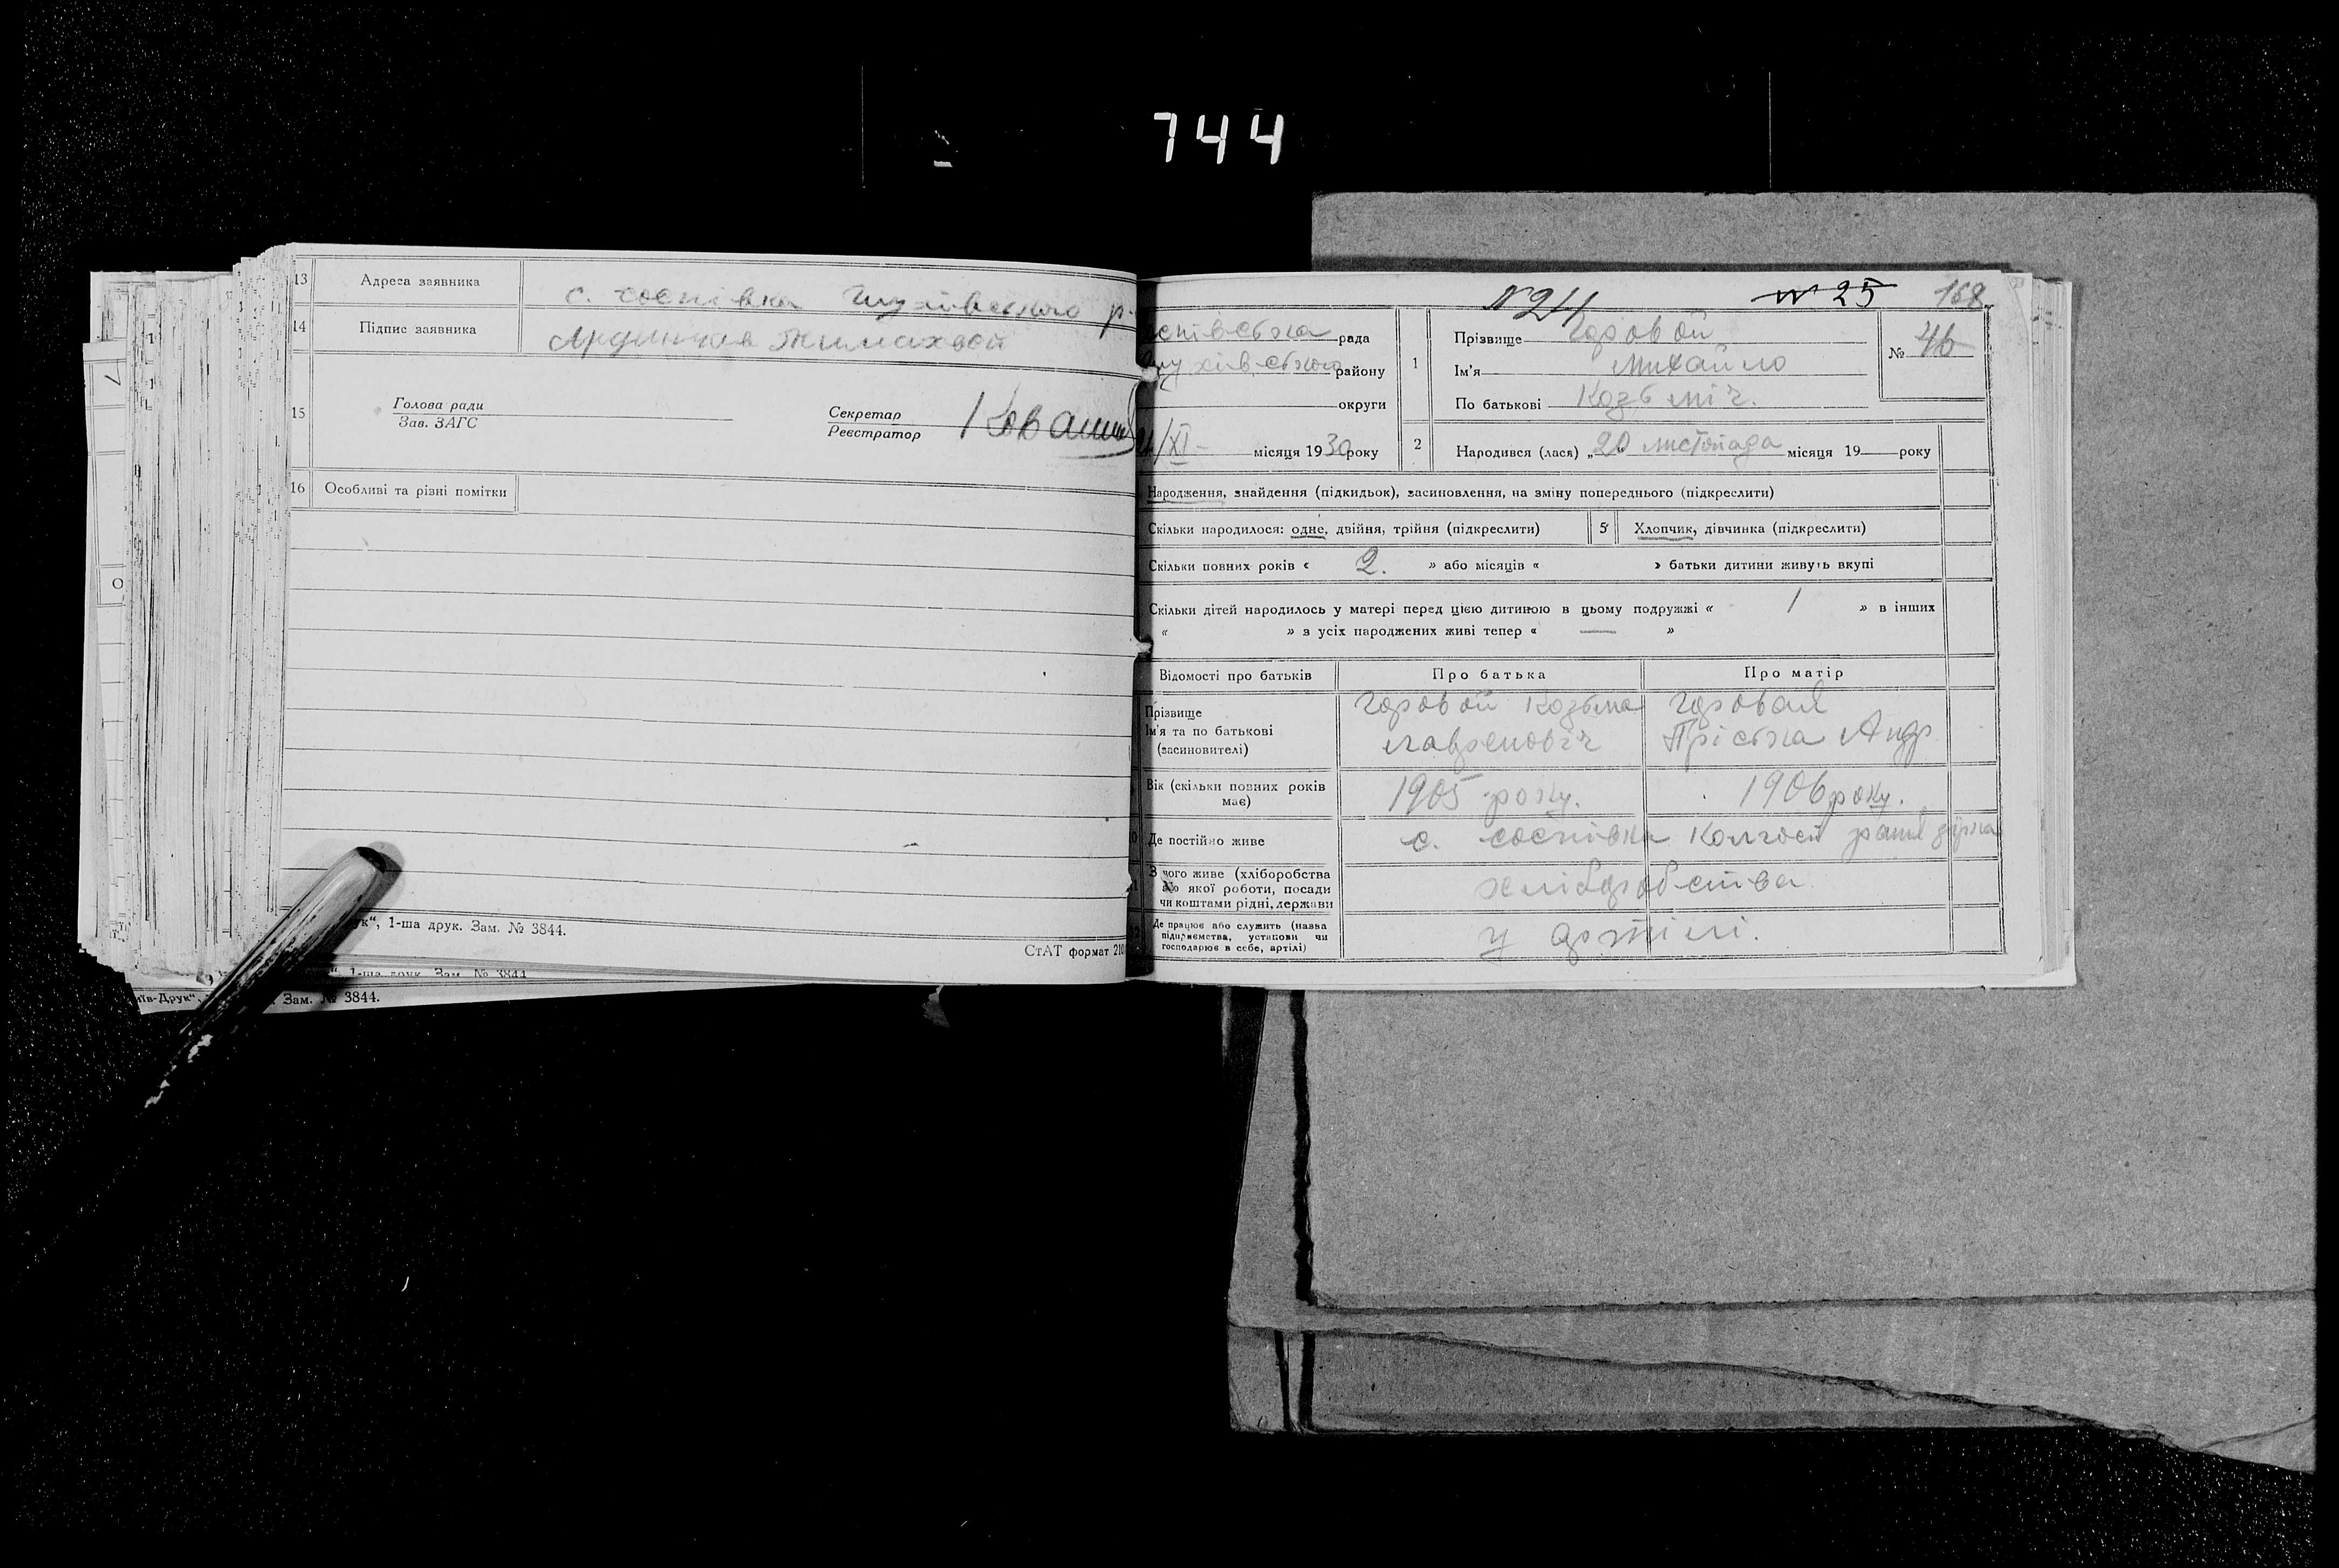 744
13 Адреса заявника с. соснівка Глухівського р.
14 Підпис заявника
15 Голова ради
Зав. ЗАГС
Секретар
Реєстратор
16 Особливі та різні помітки
ук“, 1-ша друк. Зам. № 3844.
СтАТ формат 210
1-ша друк. Зам. № 3844
їв-Друк“, Зам. № 3844.
№ 25 168
снівська рада
району
округи
/XI - місяця 1930 року
1 Прізвище Горовой
Ім'я Михайло
По батькові Козьміч.
№ 46
2 Народився (лася) „20 листопада місяця 19 року
Народження, знайдення (підкидьок), засиновлення, на зміну попереднього (підкреслити)
Скільки народилося: одне, двійня, трійня (підкреслити) 5 Хлопчик, дівчинка (підкреслити)
Скільки повних років « 2. » або місяців « » батьки дитини живуть вкупі
Скільки дітей народилось у матері перед цією дитиною в цьому подружжі « 1 » в інших
« » з усіх народжених живі тепер « — »
Відомості про батьків Про батька Про матір
Прізвище
Ім'я та по батькові
(засиновителі)
Горовой Козьма
Лавренович
Горовая
Андр
Вік (скільки повних років має) 1905 року. 1906 року.
Де постійно живе с. соснівка Колгосп
З чого живе (хліборобства
або якої роботи, посади
чи коштами рідні, держави
хліборобства
Де працює або служить (назва
підприємства, установи чи
господарює в себе, артілі)
у артілі.